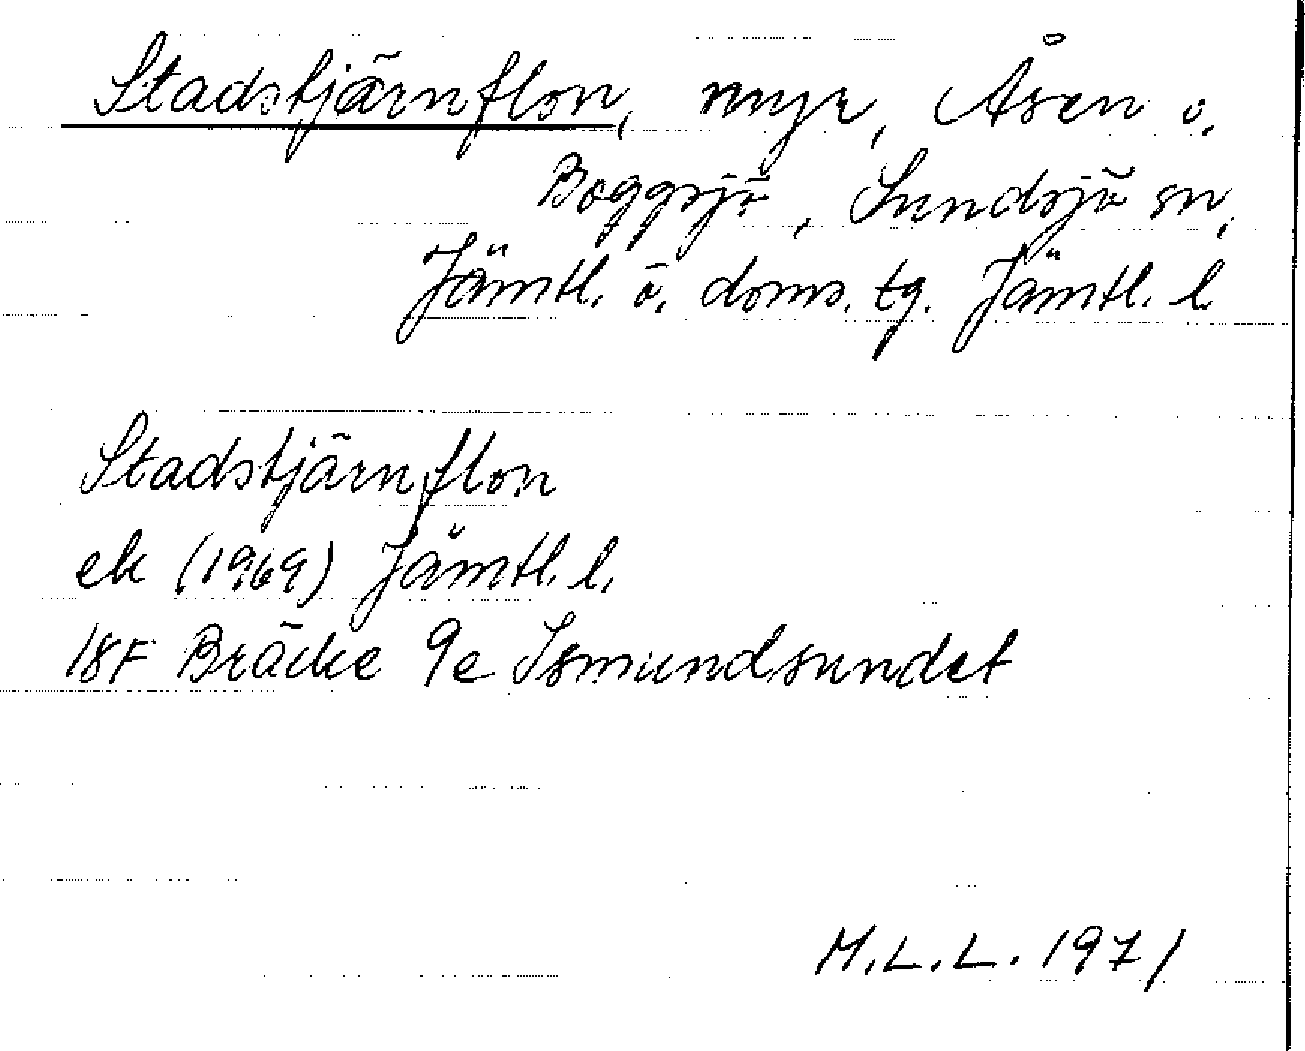 Stadstjärnflon, myr, Åsen o.
Boggsjö, Sundsjö sn,
Jämtl. ö. doms. tg. Jämtl. l
Stadstjärnflon
ek (1969) Jämtl. l.
18F Bräcke 9e Ismundsundet
M.L.L. 1971